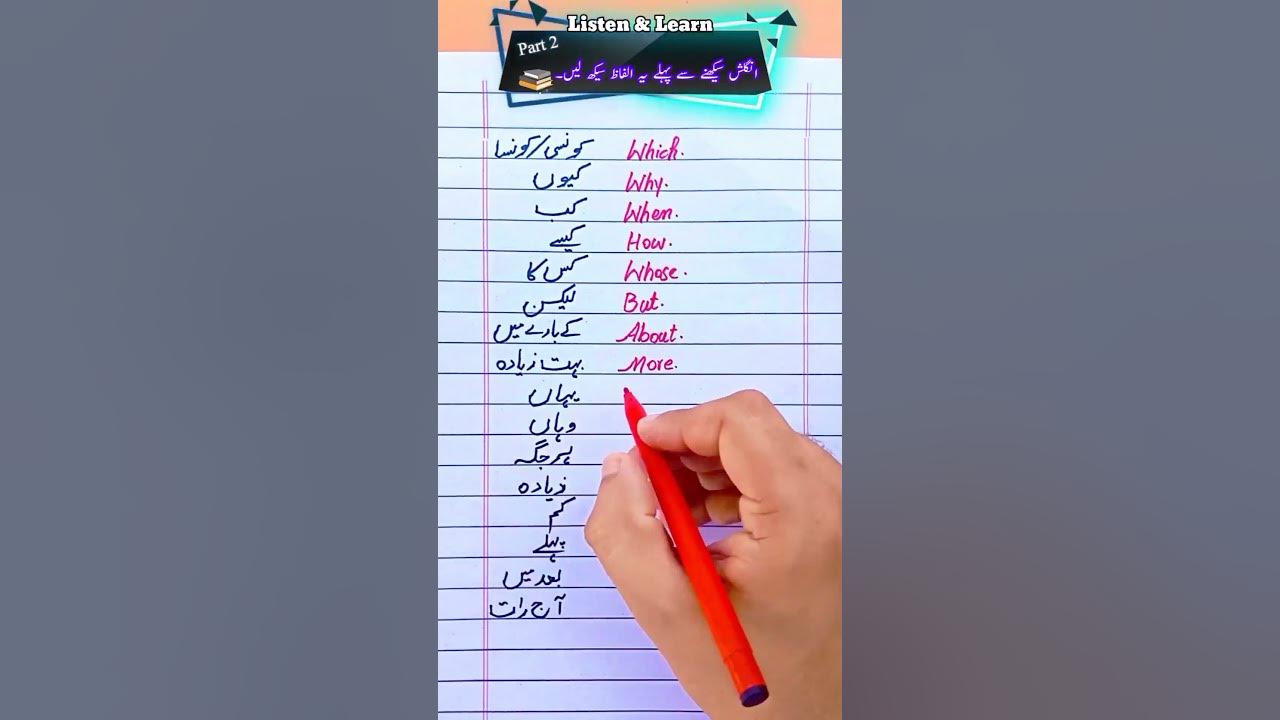 Listen & Learn
Part 2
انگلش سیکھنے سے پہلے یہ الفاظ سیکھ لیں۔
کونسی/کونسا Which.
کیوں Why.
کب When.
کیسے How.
کس کا Whose.
لیکن But.
کے بارے میں About.
بہت زیادہ More.
یہاں
وہاں
ہر جگہ
زیادہ
کم
پہلے
بعد میں
آج رات